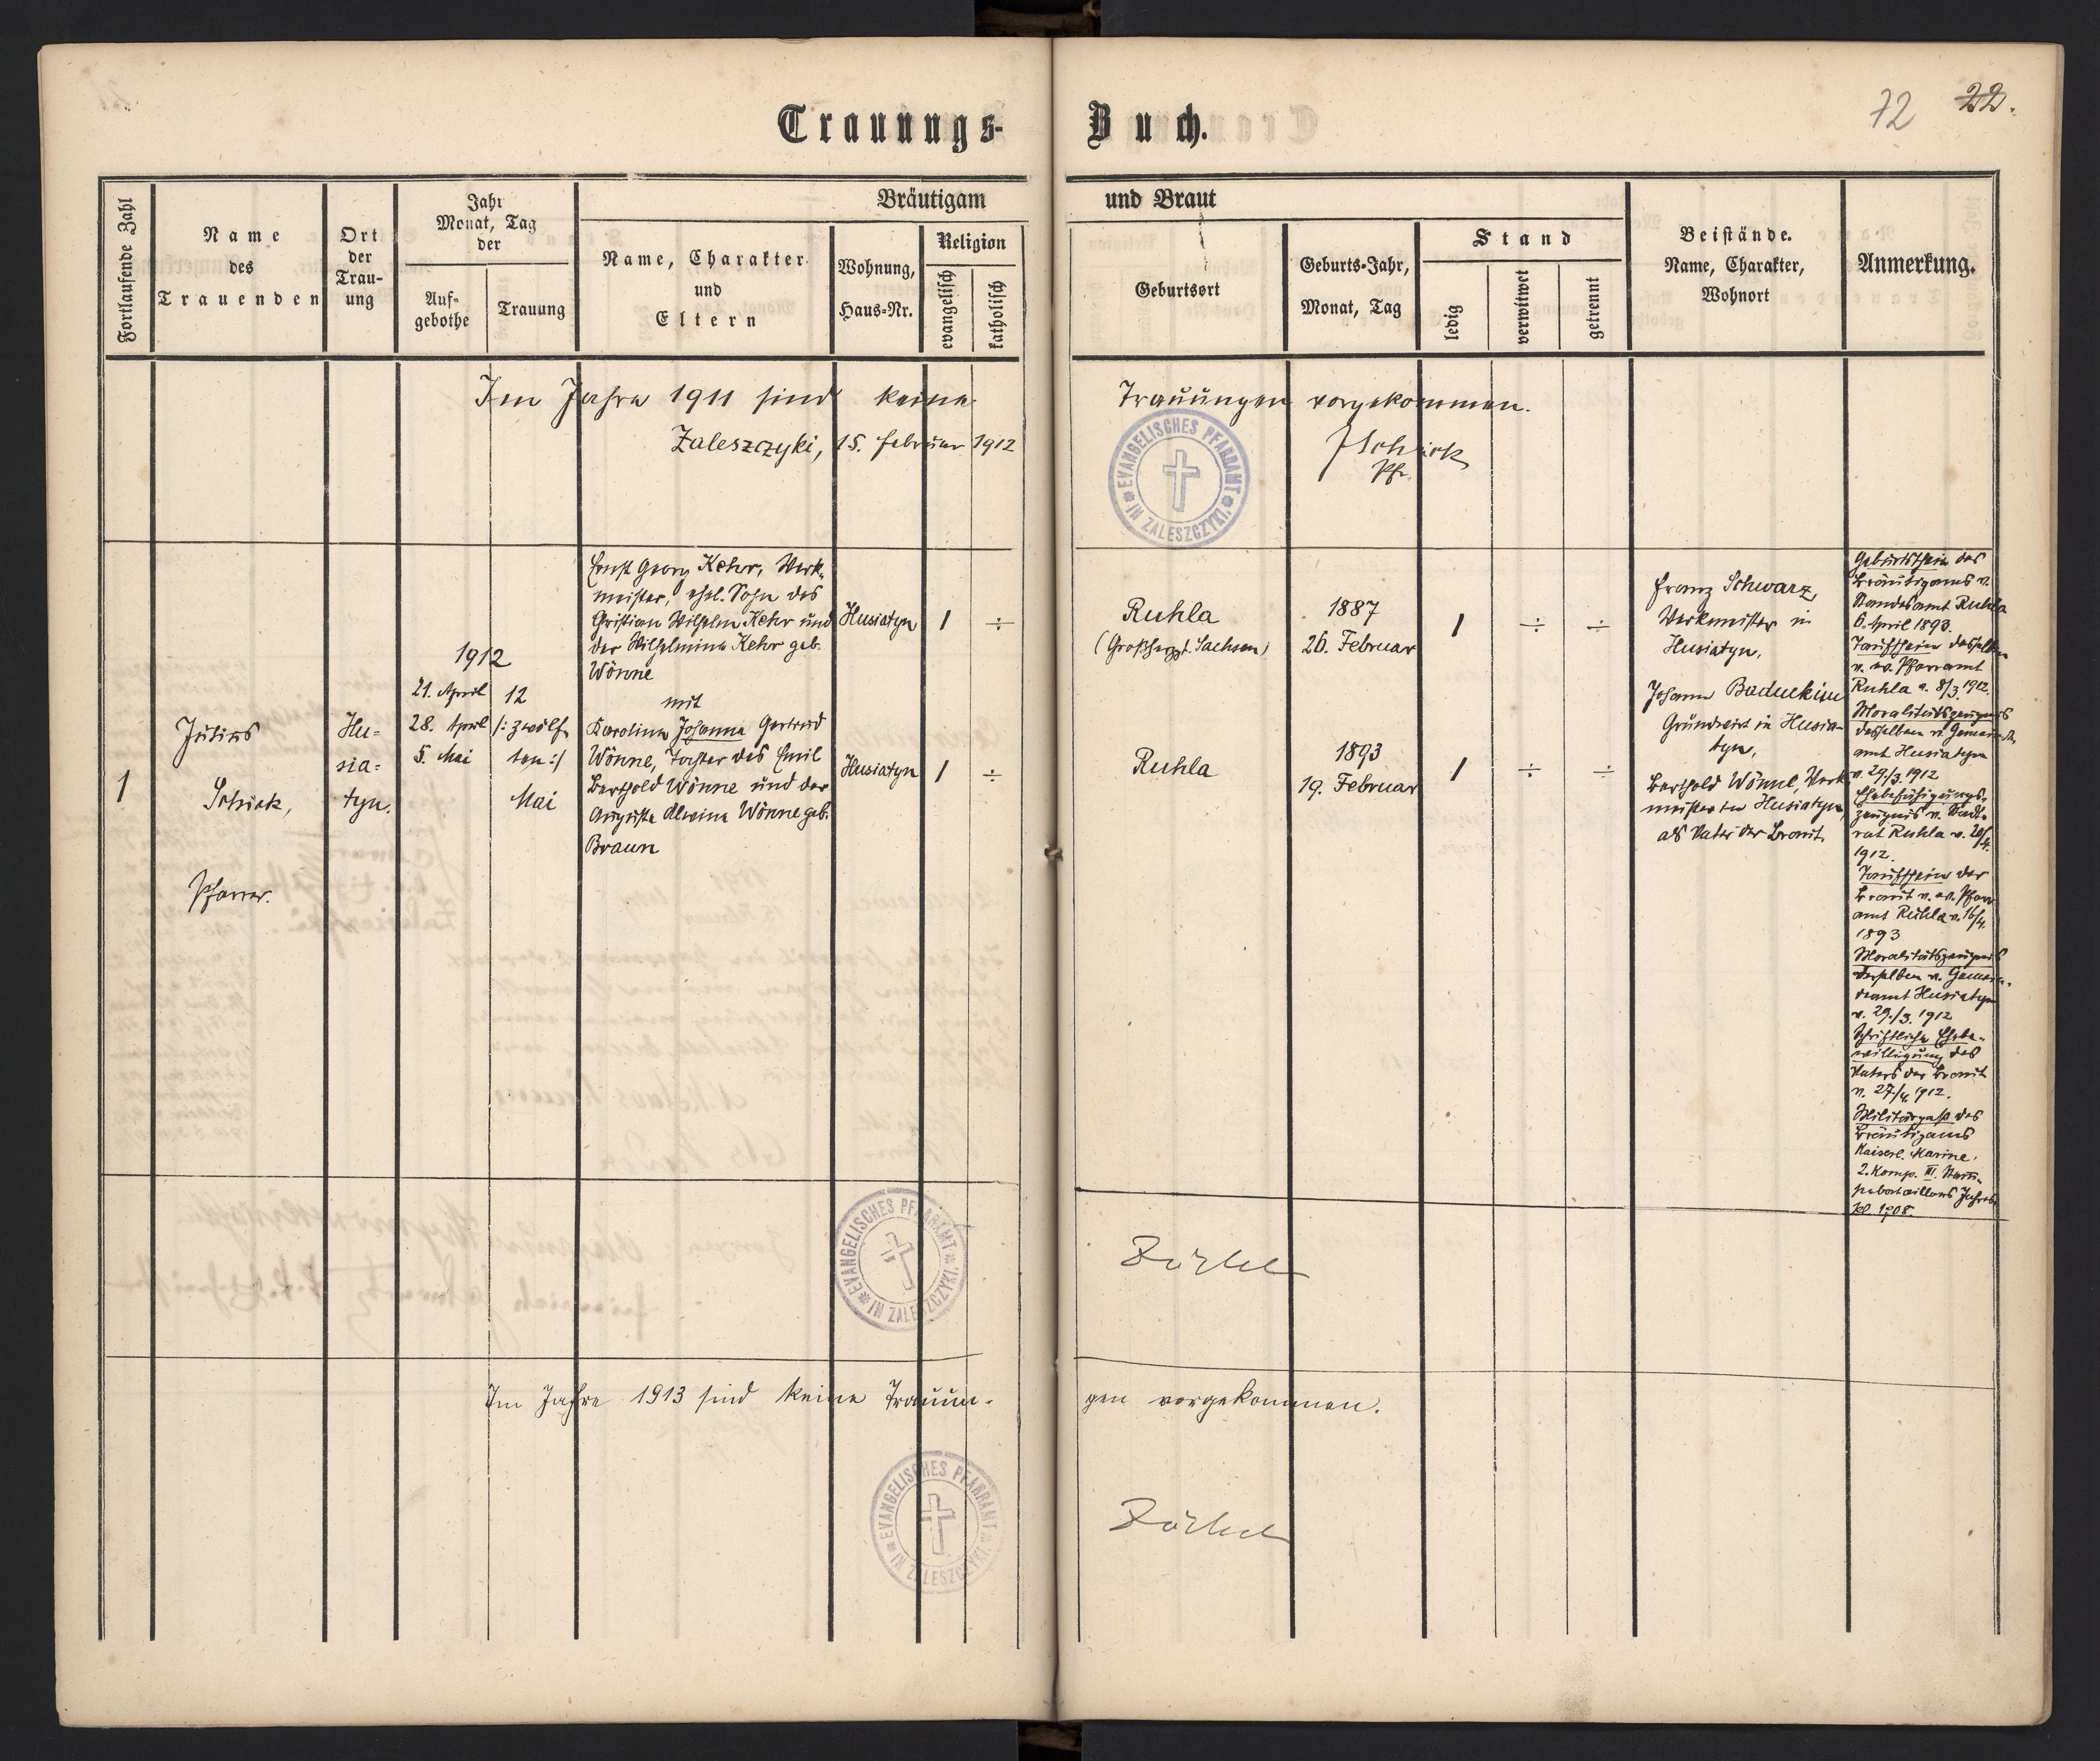 Trauungs-Buch.
72 22.
Fortlaufende Zahl
Name
des
Trauenden
Ort
der
Trau-
ung
Jahr
Monat, Tag
der
Auf-
gebothe
Trauung
Bräutigam und Braut
Name, Charakter
und
Eltern
Wohnung,
Haus-Nr.
Religion
evangelisch
katholisch
Geburtsort
Geburts-Jahr,
Monat, Tag
Stand
ledig
verwitwet
getrennt
Beistände.
Name, Charakter,
Wohnort
Anmerkung.
Im Jahre 1911 sind keine Trauungen vorgekommen.
Zaleszczyki, 15. Februar 1912
JSchick
Pfr.
EVANGELISCHES PFARRAMT
IN ZALESZCZYKI.
1
Julius
Schick,
Pfarrer.
Hu-
sia-
tyn.
1912
21. April
28. April
5. Mai
12
/: zwölf-
ten :/
Mai
Ernst Georg Kehr, Werk-
meister, ehel. Sohn des
Christian Wilhelm Kehr und
der Wilhelmine Kehr geb.
Wönne
mit
Karoline Johanna Gertrud
Wönne, Tochter des Emil
Berthold Wönne und der
Auguste Alwine Wönne geb.
Braun
Husiatyn
1 ÷
Husiatyn
1 ÷
Ruhla
(Großherzgt. Sachsen)
1887
26. Februar
1 ÷ ÷
Ruhla
1893
19. Februar
1 ÷ ÷
Franz Schwarz,
Werkmeister in
Husiatyn.
Johann
Grundwirt in Husia-
tyn,
Berthold Wönne, Werk-
meister in Husiatyn,
als Vater der Braut.
Geburtsschein des
Bräutigams v.
Standesamt Ruhla
6. April 1893.
Taufschein desselben
v. ev. Pfarramt
Ruhla v. 8/3. 1912.
Moralitätszeugnis
desselben v. Gemeinde-
amt Husiatyn
v. 29/3. 1912
Ehebefähigungs-
zeugnis v. Stadt-
rat Ruhla v. 20/4.
1912.
Taufschein der
Braut v. ev. Pfarr-
amt Ruhla v. 16/4.
1893
Moralitätszeugnis
derselben v. Gemein-
deamt Husiatyn
v. 29./3. 1912
Schriftliche Ehebe-
willigung des
Vaters der Braut
v. 27./4. 1912.
Militärpaß des
Bräutigams
Kaiserl. Marine.
2. Komp. III. Stamm-
seebataillons Jahres-
kl. 1908.
EVANGELISCHES PFARRAMT
IN ZALESZCZYKI.
Im Jahre 1913 sind keine Trauun-
gen vorgekommen.
EVANGELISCHES PFARRAMT
IN ZALESZCZYKI.